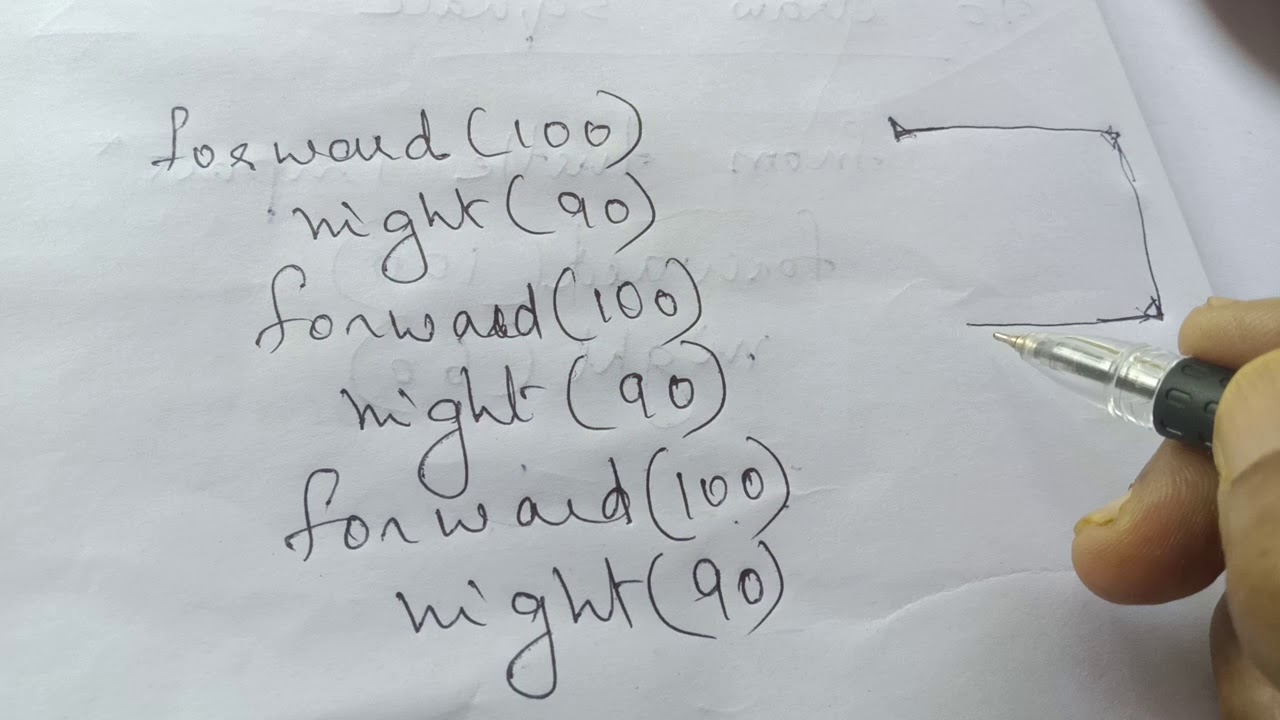 forward(100)
right(90)
forward(100)
right(90)
forward(100)
right(90)